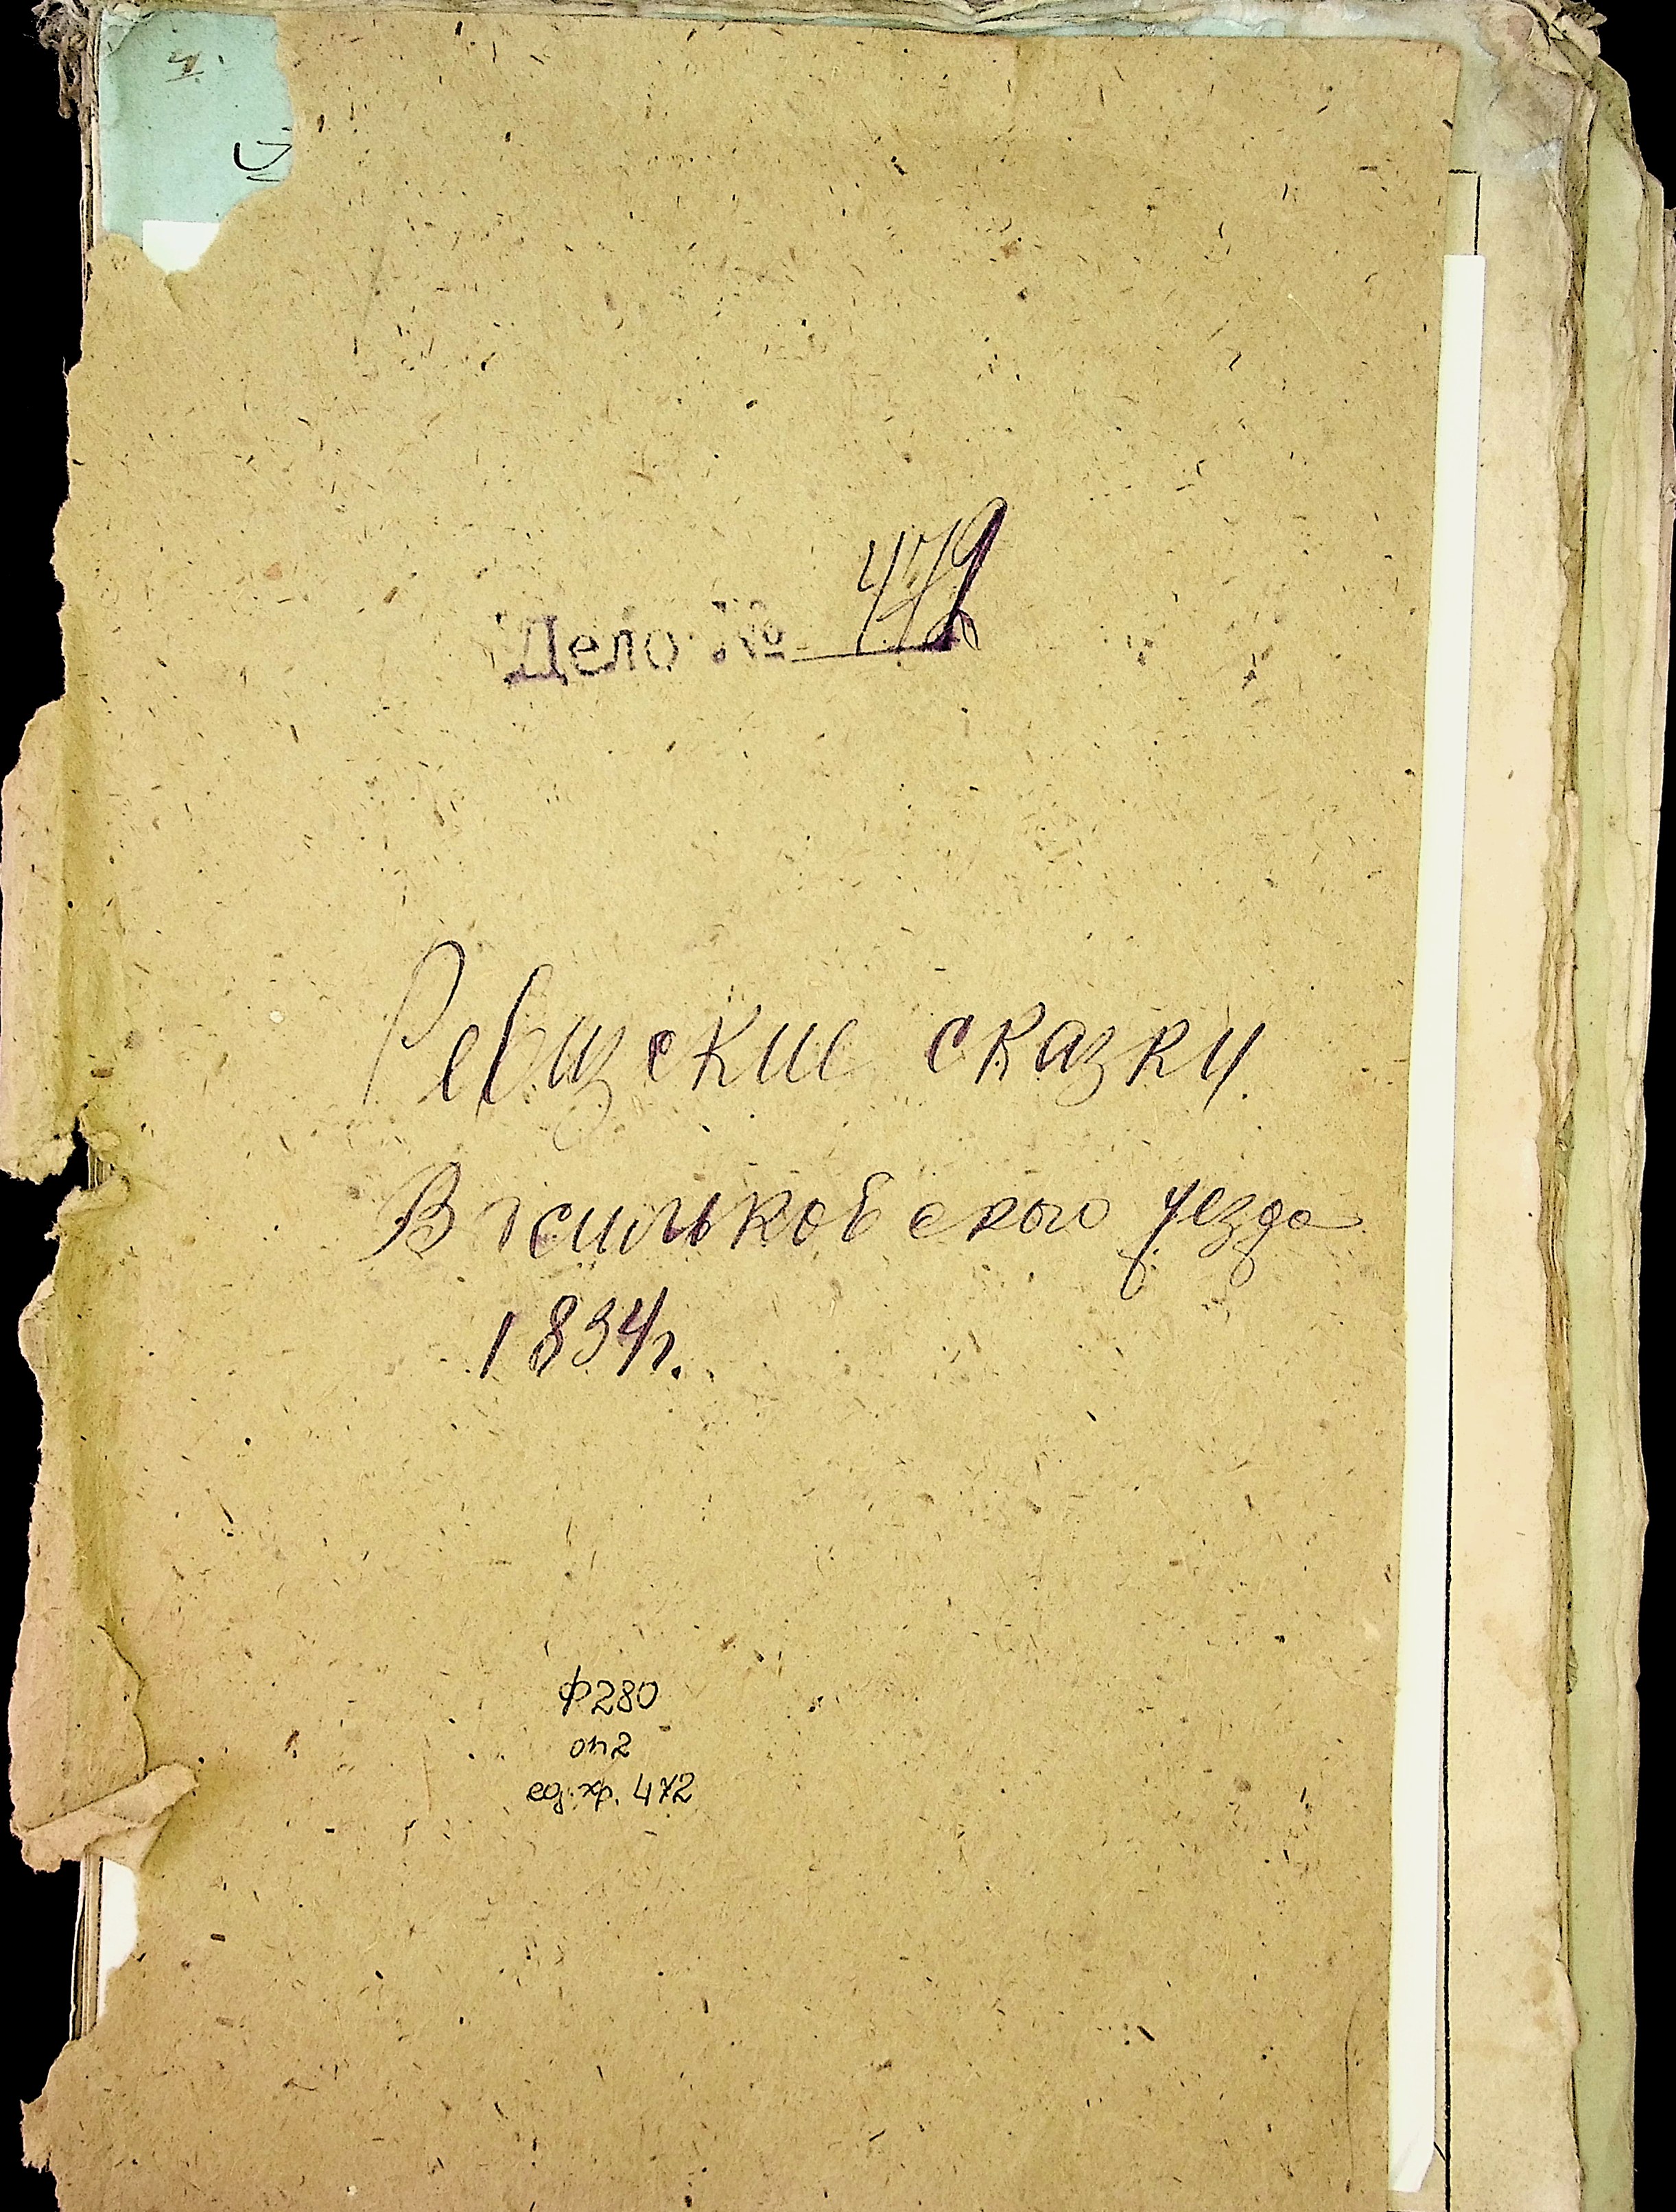 Дело № 472
Ревизские сказки
Васильковского уезда
1834г.
Ф280
оп2
ед.хр. 472